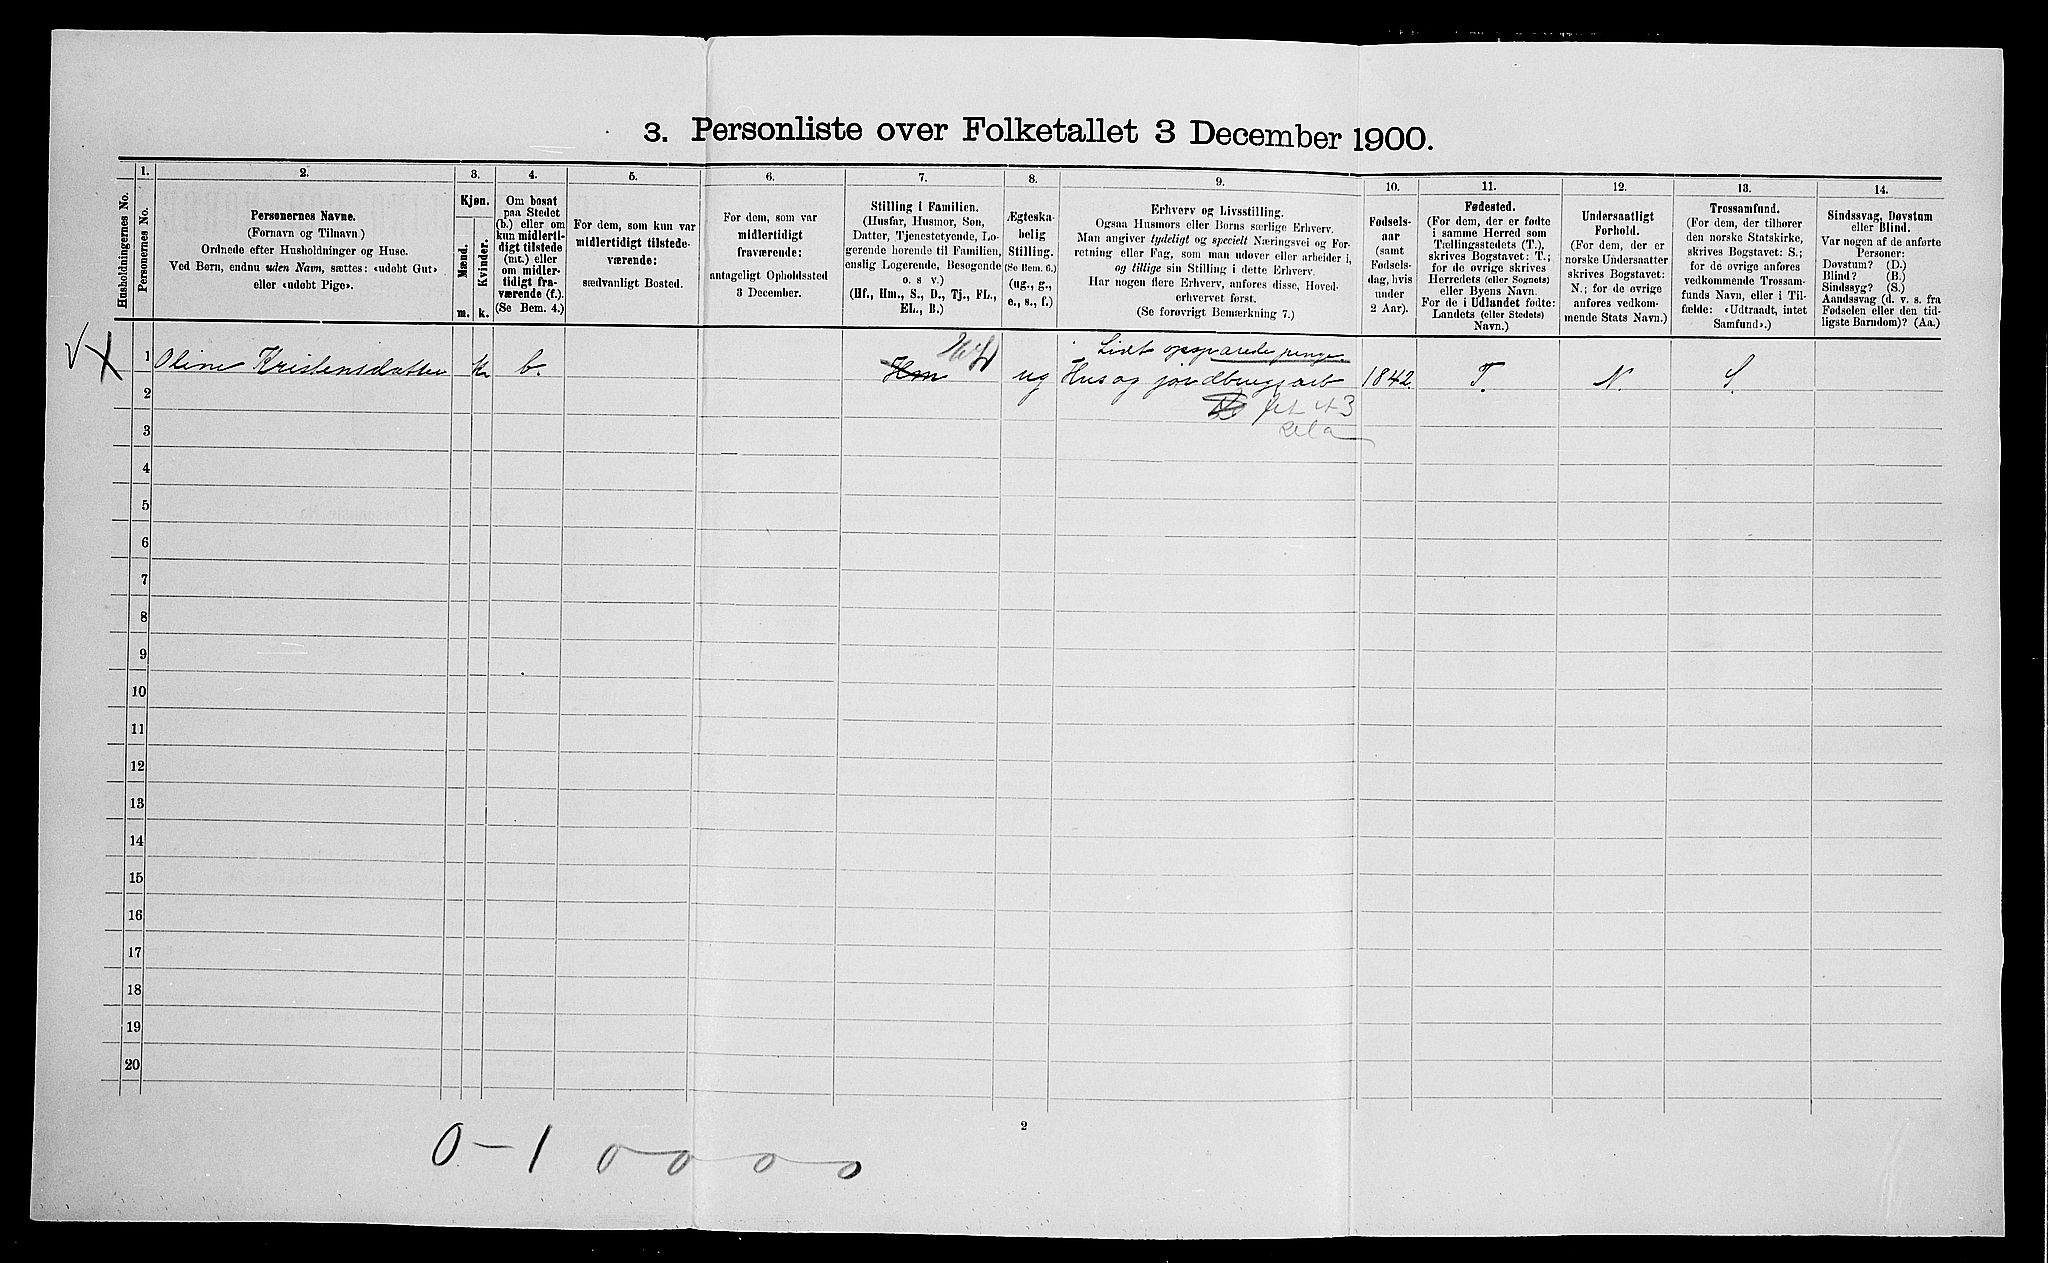 3. Personliste over Folketallet 3 December 1900.
Husholdningernes No.
1.
Personernes No.
2.
Personernes Navne.
(Fornavn og Tilnavn.)
Ordnede efter Husholdninger og Huse.
Ved Børn, endnu uden Navn, sættes: «udøbt Gut»
eller «udøbt Pige».
3.
Kjøn.
Mænd.
Kvinder.
m. k.
4.
Om bosat
paa Stedet
(b.) eller om
kun midlerti-
digt tilstede
(mt.) eller
om midler-
tidigt fra-
værende (f.).
(Se Bem. 4.)
5.
For dem, som kun var
midlertidigt tilstede-
værende:
sædvanligt Bosted.
6.
For dem, som var
midlertidigt
fraværende:
antageligt Opholdssted
3 December.
7.
Stilling i Familien.
(Husfar, Husmor, Søn,
Datter, Tjenestetyende, Lo-
gerende hørende til Familien,
enslig Logerende, Besøgende
o. s v.)
(Hf., Hm., S., D., Tj., FL.,
EL., B.)
8.
Ægteska-
belig
Stilling.
(Se Bem. 6.)
(ug., g.,
e., s., f.)
9.
Erhverv og Livsstilling.
Ogsaa Husmors eller Børns særlige Erhverv.
Man angiver tydeligt og specielt Næringsvei og For-
retning eller Fag, som man udøver eller arbeider i,
og tillige sin Stilling i dette Erhverv.
Har nogen flere Erhverv, anføres disse, Hoved-
erhvervet først.
(Se forøvrigt Bemærkning 7.)
10.
Fødsels-
aar
(samt
Fødsels-
dag, hvis
under
2 Aar).
11.
Fødested.
(For dem, der er fødte
i samme Herred som
Tællingsstedets (T.),
skrives Bogstavet: T.;
for de øvrige skrives
Herredets (eller Sognets)
eller Byens Navn.
For de i Udlandet fødte:
Landets (eller Stedets)
Navn.)
12.
Undersaatligt
Forhold.
(For dem, der er
norske Undersaatter
skrives Bogstavet:
N.; for de øvrige
anføres vedkom-
mende Stats Navn.)
13.
Trossamfund.
(For dem, der tilhører
den norske Statskirke,
skrives Bogstavet: S.;
for de øvrige anføres
vedkommende Trossam-
funds Navn, eller i Til-
fælde: «Udtraadt, intet
Samfund».)
14.
Sindssvag, Døvstum
eller Blind.
Var nogen af de anførte
Personer:
Døvstum? (D.)
Blind? (B.)
Sindssyg? (S.)
Aandssvag (d. v. s. fra
Fødselen eller den tid-
ligste Barndom)? (Aa.)
Lidt opsparede penge.
1 Oline Kristensdatter k b. Hm ug Hus og jordbrugsarb 1842. T. N. S.
2
3
4
5
6
7
8
9
10
11
12
13
14
15
16
17
18
19
20
2
0-1 0 0 0 0